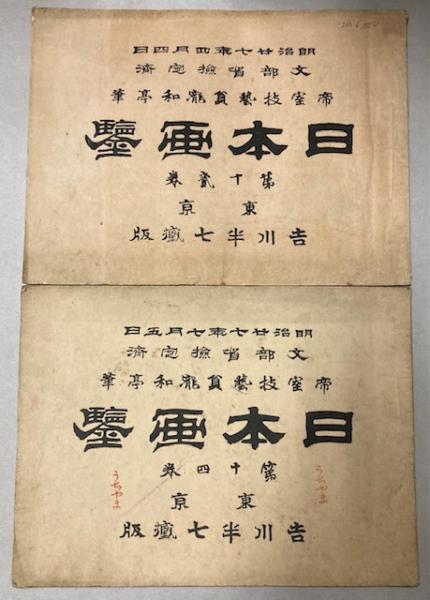 明治廿七年四月四日
文部省撿定濟
帝室技藝員瀧和亭筆
日本画鑒
第十貳巻
東京
吉川半七藏版
明治廿七年七月五日
文部省撿定濟
帝室技藝員瀧和亭筆
日本画鑒
第十四巻
東京
吉川半七藏版
うちやま
うちやま